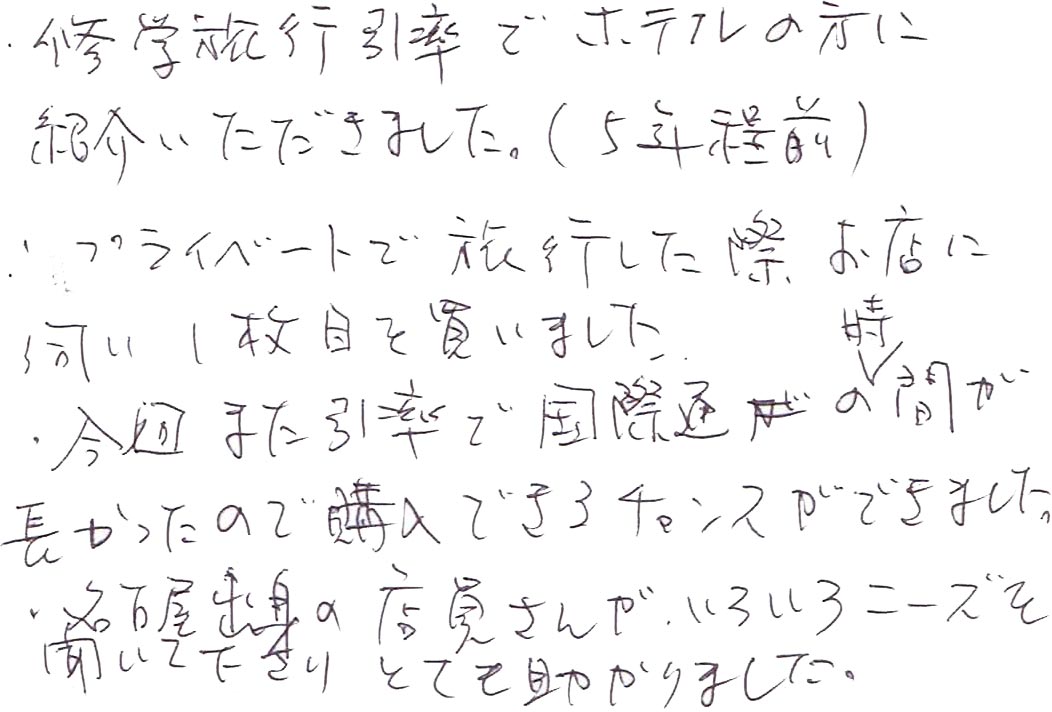 ・修学旅行引率でホテルの方に
紹介いただきました。(5年程前)
・プライベートで旅行した際お店に
伺い1枚目を買いました
・今週また引率で国際通りの時間が
長かったので購入できるチャンスができました。
・名古屋出身の店員さんが、いろいろニーズを
聞いて下さりとても助かりました。